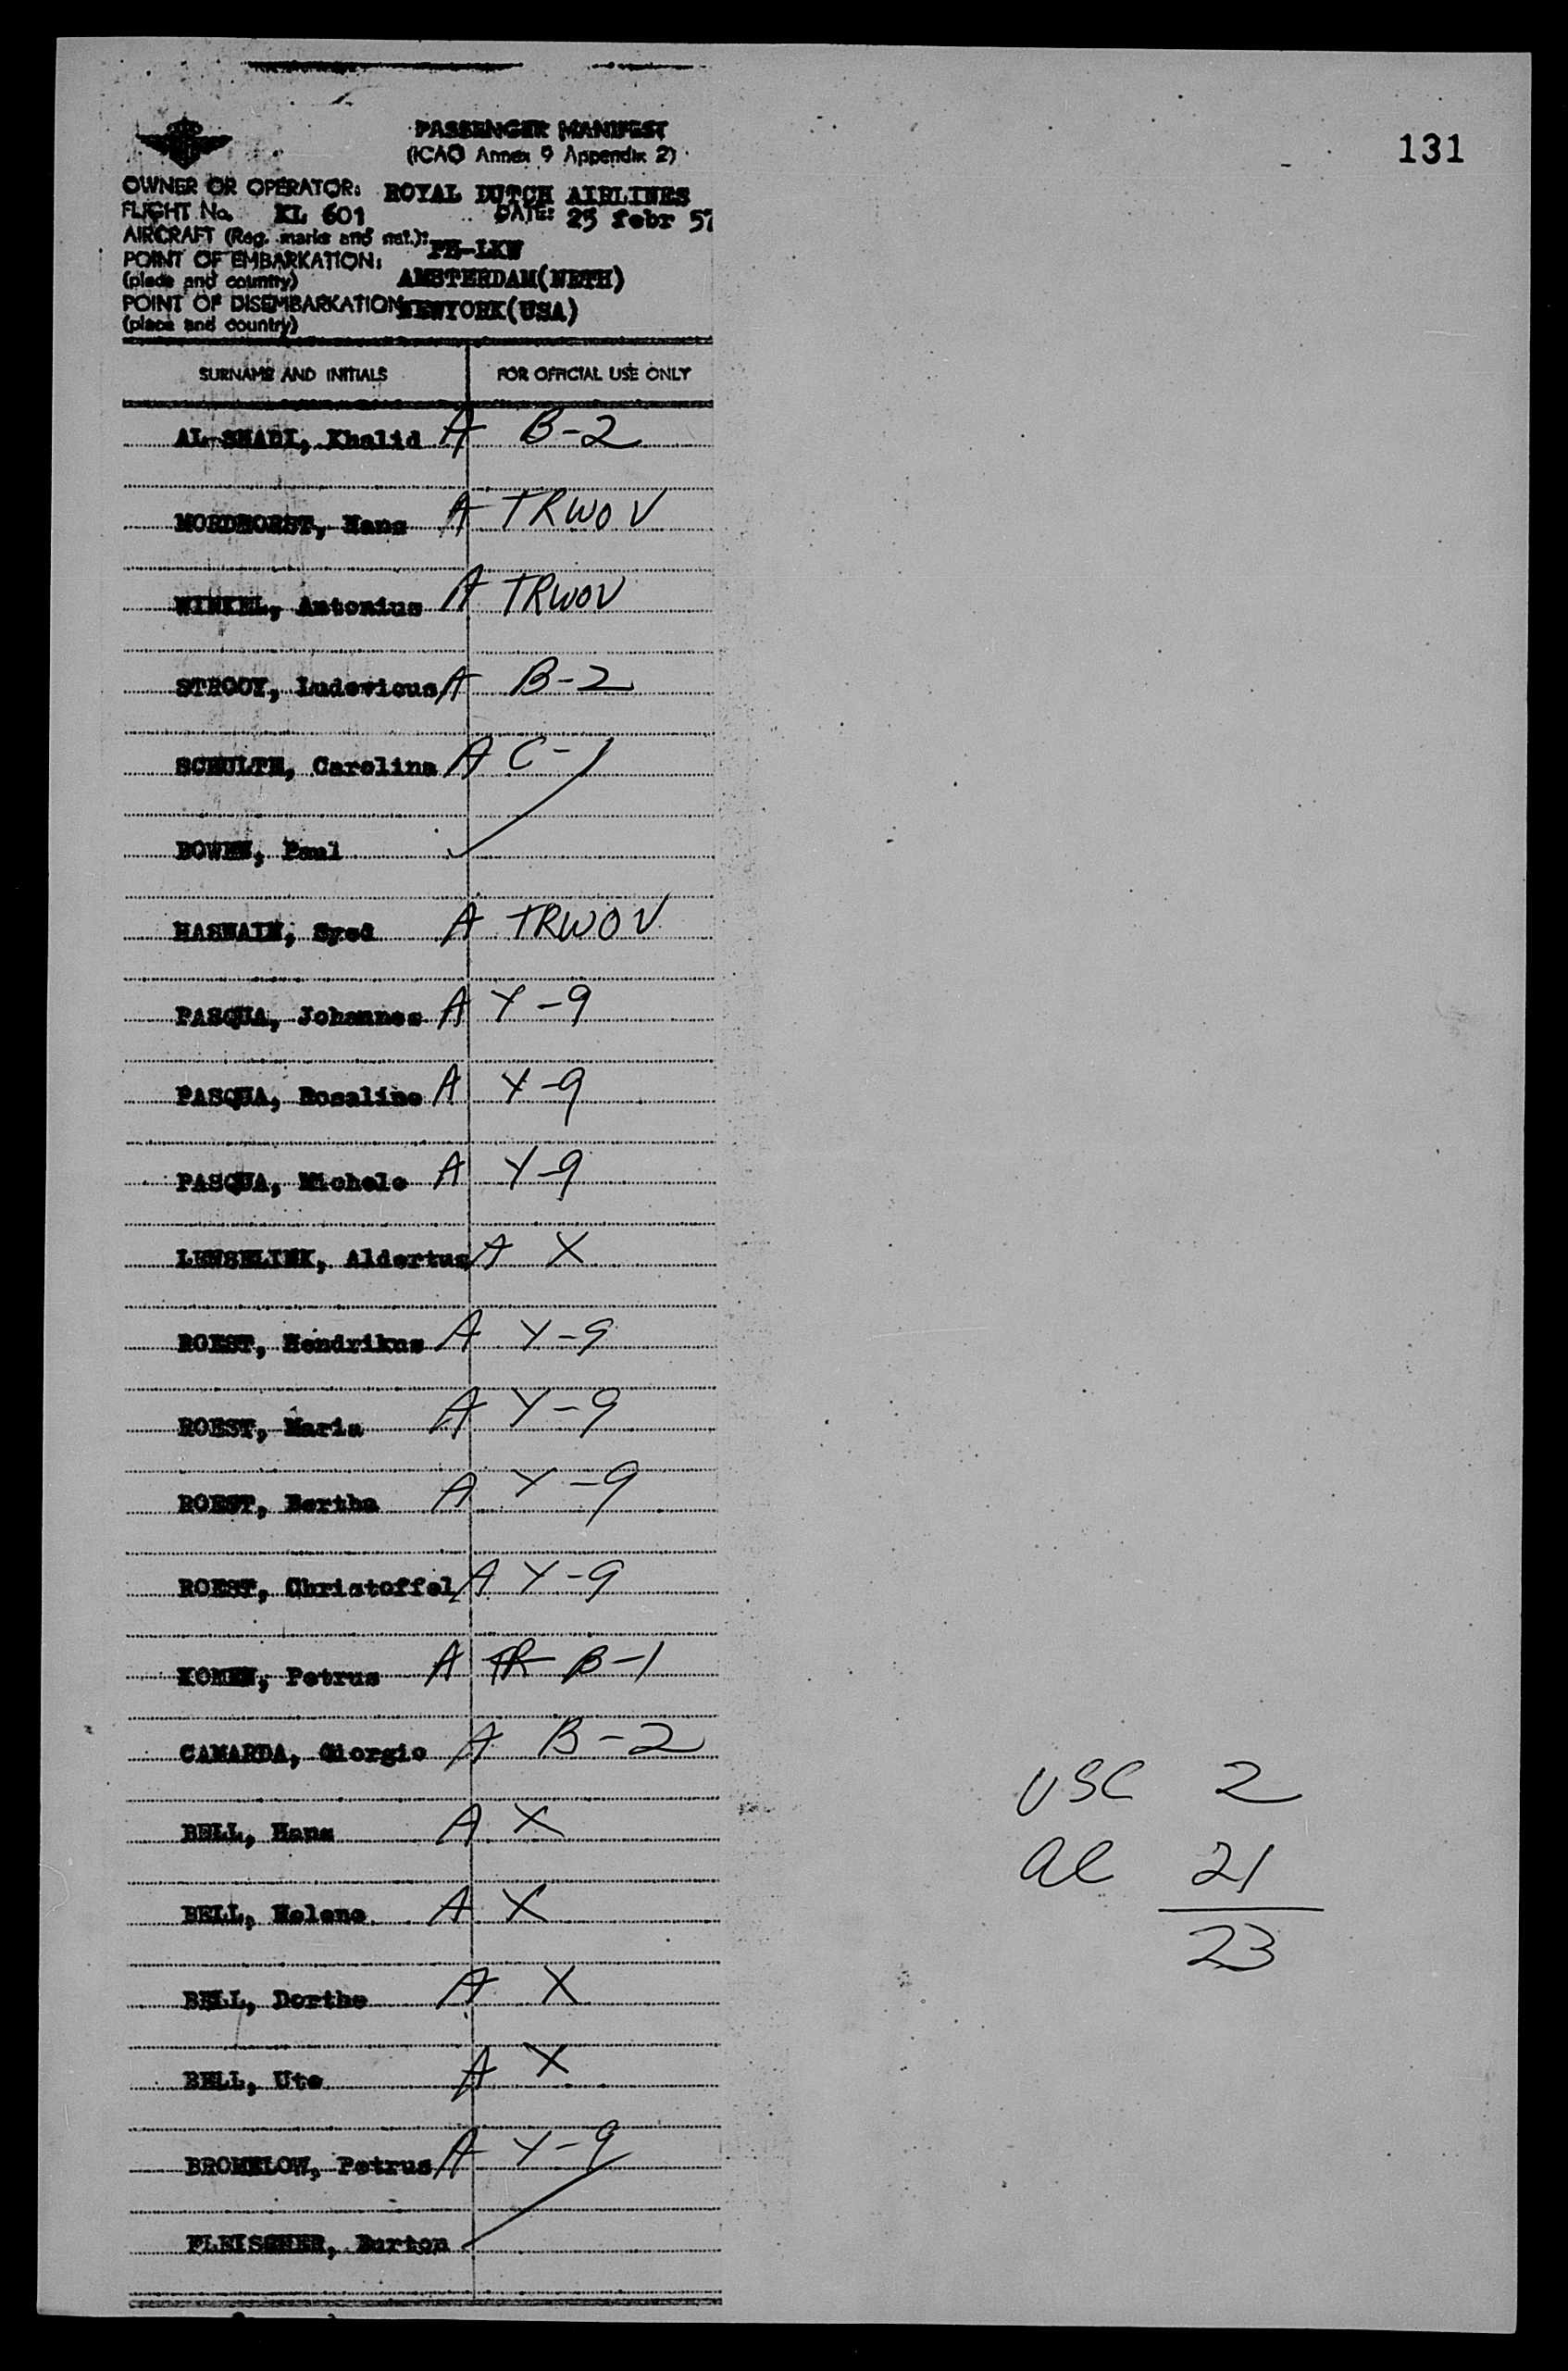 PASSENGER MANIFEST
(ICAO Annex 9 Appendix 2)
131
OWNER OR OPERATOR: ROYAL DUTCH AIRLINES
FLIGHT No. KL 601 DATE: 25 febr 57
AIRCRAFT (Reg. marks and nat.): PH-LKW
POINT OF EMBARKATION:
(place and country) AMSTERDAM(NETH)
POINT OF DISEMBARKATION NEWYORK(USA)
(place and country)
SURNAME AND INITIALS FOR OFFICIAL USE ONLY
AL-SHADI, Khalid A B-2
MORDHORST, Hans A TRWOV
WINKEL, Antonius A TRWOV
STROOY, Ludovicus A B-2
SCHULTE, Carolina A C-1
BOWEN, Paul
HASNAIN, Syed A TRWOV
PASQUA, Johannes A Y-9
PASQUA, Rosaline A Y-9
PASQUA, Michele A Y-9
LENSELINK, Aldertus A X
ROEST, Hendrikus A Y-9
ROEST, Maria A Y-9
ROEST, Bertha A Y-9
ROEST, Christoffel A Y-9
KOMEN, Petrus A TR B-1
CAMARDA, Giorgio A B-2
BELL, Hans A X
BELL, Helene A X
BELL, Dorthe A X
BELL, Ute A X
BROMELOW, Petrus A Y-9
FLEISCHER, Burton
USC 2
al 21
23